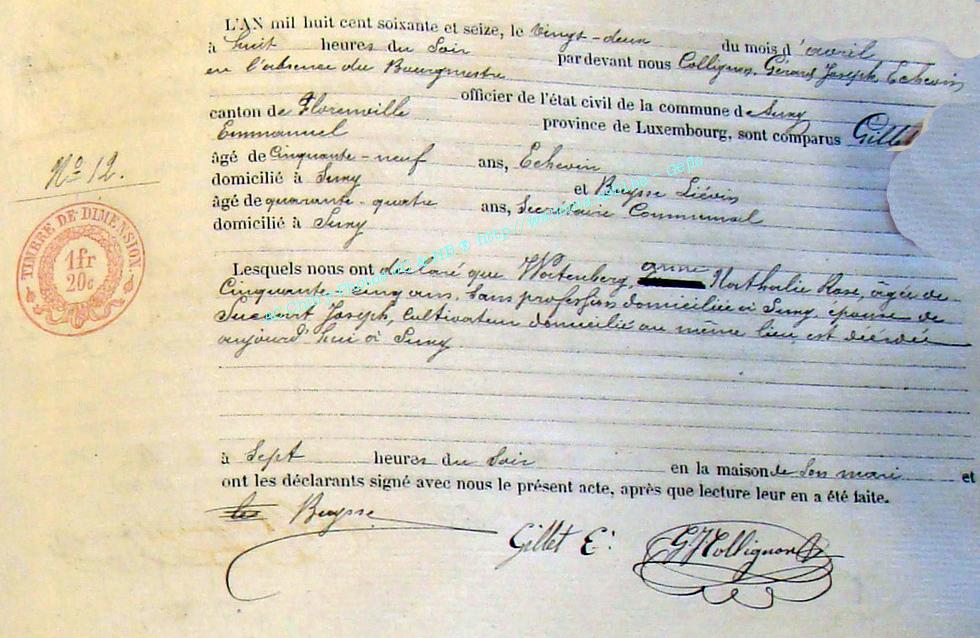 L'AN mil huit cent soixante et seize, le vingt-deux du mois d'avril
à huit heures du Soir pardevant nous Collignon, Gérard Joseph, Echevin
en l'absence du Bourgmestre
officier de l'état civil de la commune de Suny
canton de Florenville province de Luxembourg, sont comparus Gillet
Emmanuel
âgé de Cinquante-neuf ans, Echevin
domicilié à Suny et Buysse Liévin
âgé de quarante-quatre ans, Secrétaire Communal
domicilié à Suny
N° 12.
TIMBRE DE DIMENSION
1 fr
20 c
Lesquels nous ont déclaré que Woitenberg, anne Nathalie Rose, âgée de
Cinquante-cinq ans, Sans profession domiciliée à Suny, épouse de
Joseph, Cultivateur domicilié au même lieu, est décédée
aujourd'hui à Suny
à Sept heures du Soir en la maison de Son mari et
ont les déclarants signé avec nous le présent acte, après que lecture leur en a été faite.
Buysse
Gillet E:
GJCollignon